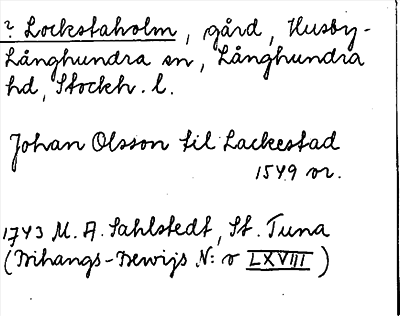 ? Lockstaholm, gård, Husby-
Långhundra sn, Långhundra
hd, Stockh. l.
Johan Olsson til Lackestad
1549 or.
1743 M. A. Sahlstedt, St. Tuna
(Bihangs-Bewijs N:o LXVIII)